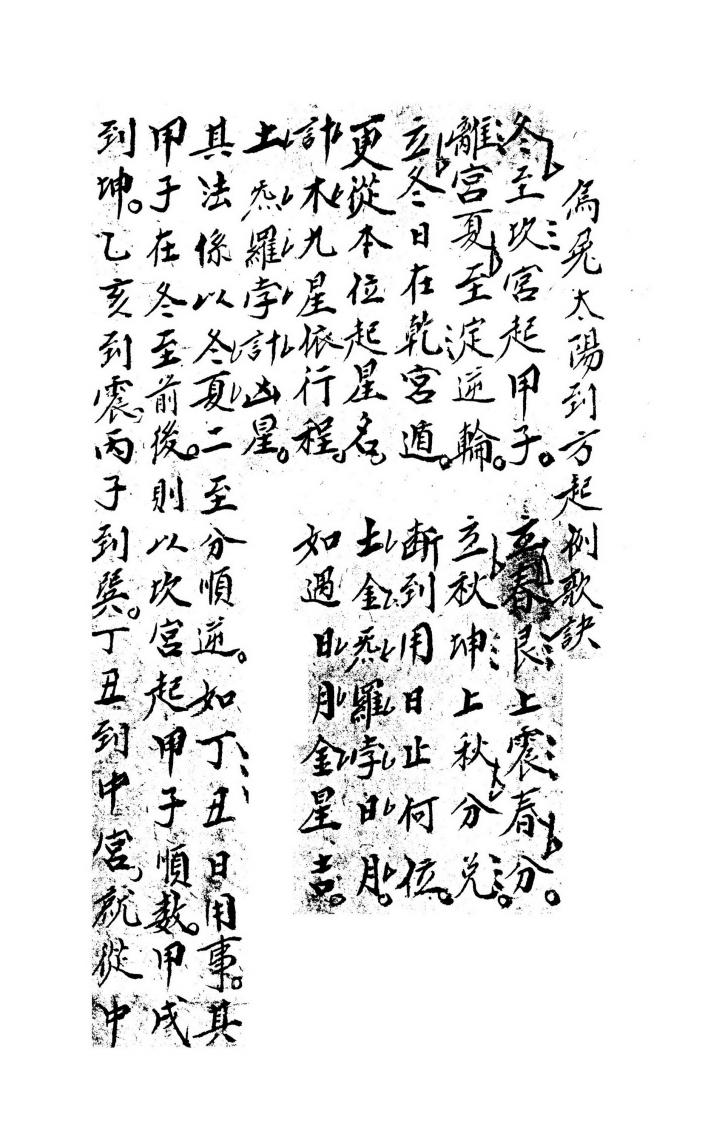 烏兔太陽到方起例歌訣
冬至坎宮起甲子。立春艮上震春分。
離宮夏至淀逆輪。立秋坤上秋分兌。
立冬日在乾宮遁。断到用日止何位。
更從本位起星名。土金炁羅孛日月。
計木九星依行程。如遇日月金星吉。
土炁羅孛計凶星。
其法係以冬夏二至分順逆。如丁丑日用事。其
甲子在冬至前後。則以坎宮起甲子順數。甲戌
到坤。乙亥到震。丙子到巽。丁丑到中宮。就從中